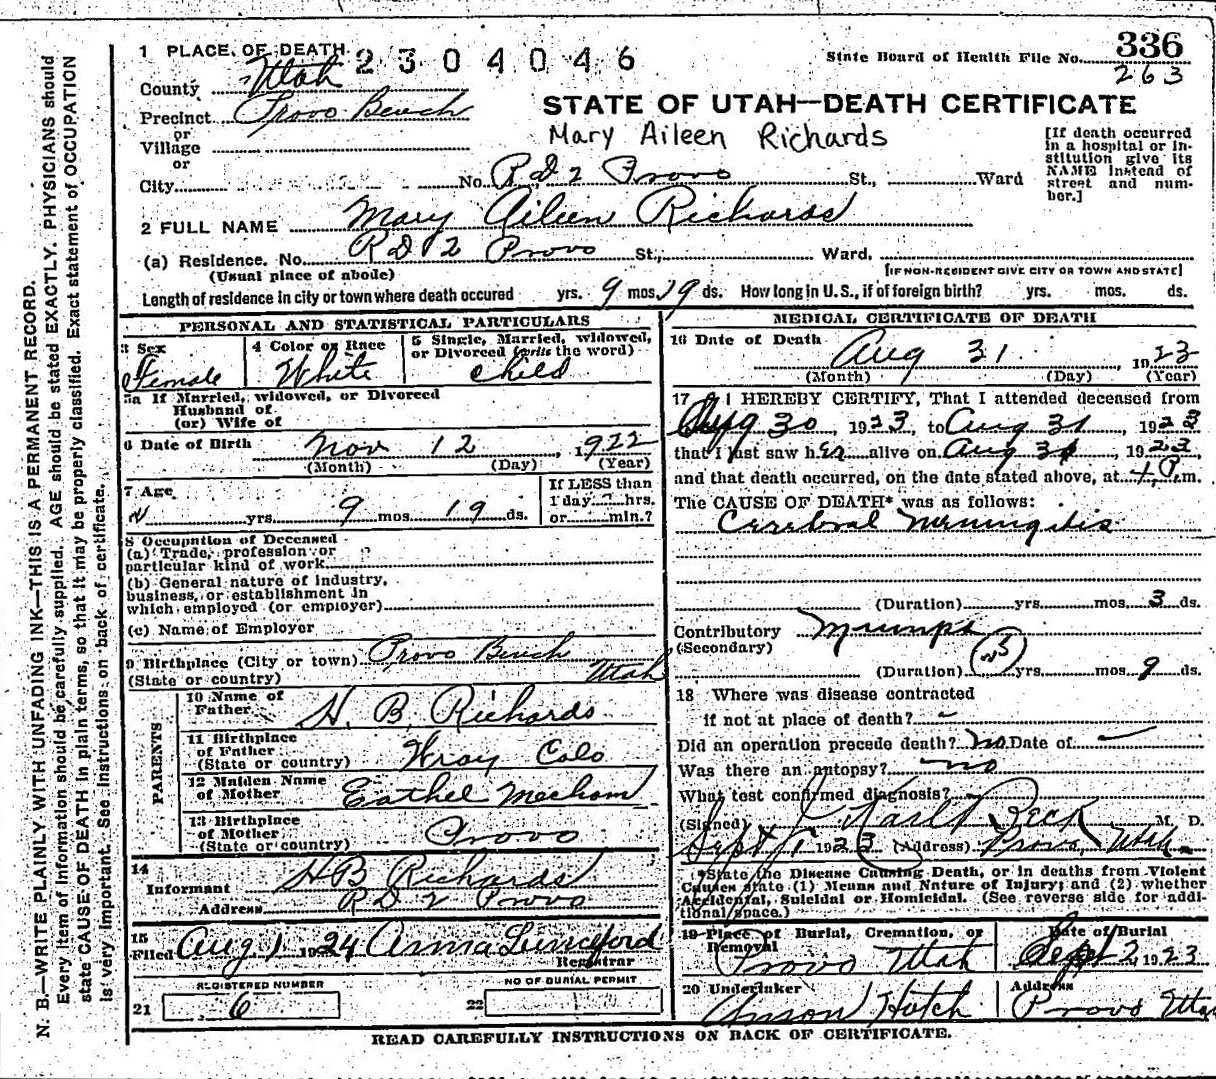 1 PLACE OF DEATH
2304046
State Board of Health File No. 336
263
County Utah
Precinct Provo Bench
or
Village
or
City
STATE OF UTAH—DEATH CERTIFICATE
Mary Aileen Richards
[If death occurred in a hospital or institution give its NAME instead of street and number.]
No. R D 2 Provo St., Ward
2 FULL NAME Mary Aileen Richards
(a) Residence. No. R D 2 Provo St., Ward.
(Usual place of abode)
[IF NON-RESIDENT GIVE CITY OR TOWN AND STATE]
Length of residence in city or town where death occured yrs. 9 mos. 19 ds. How long in U. S., if of foreign birth? yrs. mos. ds.
PERSONAL AND STATISTICAL PARTICULARS
3 Sex
Female
4 Color or Race
White
5 Single, Married, widowed,
or Divorced (write the word)
Child
5a If Married, widowed, or Divorced
Husband of
(or) Wife of
6 Date of Birth Nov 12, 1922
(Month) (Day) (Year)
7 Age
yrs. 9 mos. 19 ds.
If LESS than
1 day hrs.
or min.?
8 Occupation of Deceased
(a) Trade, profession or
particular kind of work
(b) General nature of industry,
business, or establishment in
which employed (or employer)
(c) Name of Employer
9 Birthplace (City or town) Provo Bench
(State or country) Utah
PARENTS
10 Name of
Father H. B. Richards
11 Birthplace
of Father
(State or country) Wray Colo
12 Maiden Name
of Mother Eathel Mecham
13 Birthplace
of Mother
(State or country) Provo
14
Informant H B Richards
Address R D 2 Provo
15
Filed Aug 1 1924 Anna Lunceford
Registrar
21 REGISTERED NUMBER
6
22 NO OF BURIAL PERMIT
MEDICAL CERTIFICATE OF DEATH
16 Date of Death Aug 31, 1923
(Month) (Day) (Year)
17 I HEREBY CERTIFY, That I attended deceased from
Aug 30 1923, to Aug 31, 1923
that I last saw her alive on Aug 31, 1923
and that death occurred, on the date stated above, at P.m.
The CAUSE OF DEATH* was as follows:
Cerebral Meningitis
(Duration) yrs. mos. 3 ds.
Contributory Mumps
(Secondary)
(Duration) yrs. mos. 9 ds.
18 Where was disease contracted
if not at place of death? -
Did an operation precede death? No. Date of —
Was there an autopsy? no
What test confirmed diagnosis?
(Signed) Karl Beck M. D.
Sept 1 1923 (Address) Provo, Utah
*State the Disease Causing Death, or in deaths from Violent
Causes state (1) Means and Nature of Injury; and (2) whether
Accidental, Suicidal or Homicidal. (See reverse side for additional space.)
19 Place of Burial, Cremation, or
Removal
Provo Utah
Date of Burial
Sept 2, 1923
20 Undertaker
Anson Hatch
Address
Provo Utah
READ CAREFULLY INSTRUCTIONS ON BACK OF CERTIFICATE.
N. B.—WRITE PLAINLY WITH UNFADING INK—THIS IS A PERMANENT RECORD.
Every item of information should be carefully supplied. AGE should be stated EXACTLY. PHYSICIANS should
state CAUSE OF DEATH in plain terms, so that it may be properly classified. Exact statement of OCCUPATION
is very important. See instructions on back of certificate.